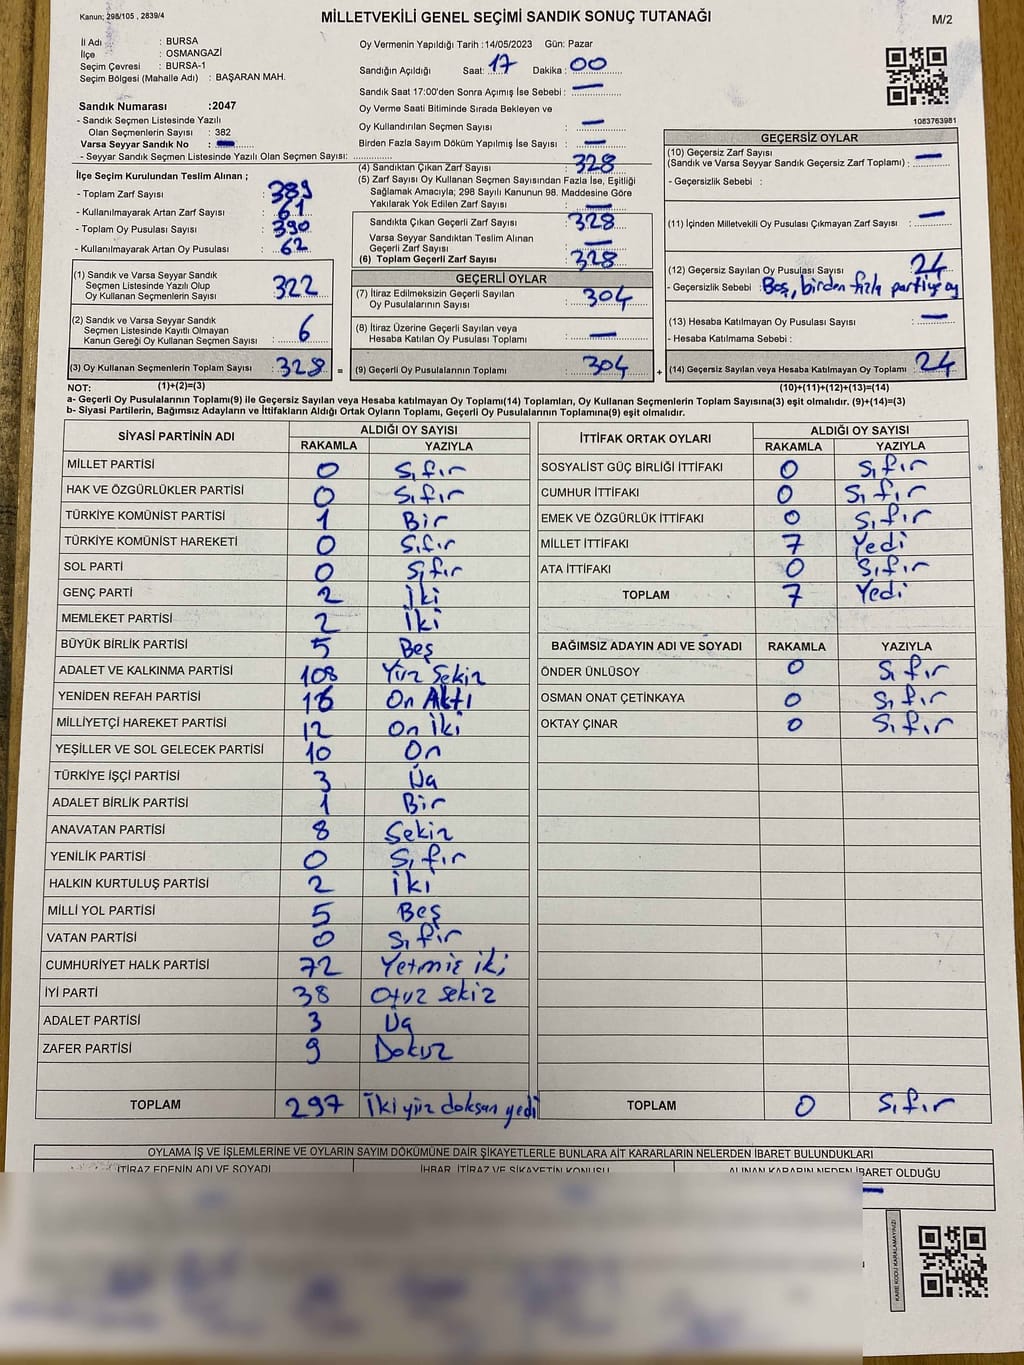 Kanun; 298/105 , 2839/4
MİLLETVEKİLİ GENEL SEÇİMİ SANDIK SONUÇ TUTANAĞI
M/2
İl Adı : BURSA
İlçe : OSMANGAZİ
Seçim Çevresi : BURSA-1
Seçim Bölgesi (Mahalle Adı) : BAŞARAN MAH.
Sandık Numarası :2047
- Sandık Seçmen Listesinde Yazılı
Olan Seçmenlerin Sayısı : 382
Varsa Seyyar Sandık No : —
- Seyyar Sandık Seçmen Listesinde Yazılı Olan Seçmen Sayısı:
Oy Vermenin Yapıldığı Tarih :14/05/2023 Gün: Pazar
Sandığın Açıldığı Saat: 17 Dakika : 00
Sandık Saat 17:00'den Sonra Açımış İse Sebebi : —
Oy Verme Saati Bitiminde Sırada Bekleyen ve
Oy Kullandırılan Seçmen Sayısı : —
Birden Fazla Sayım Döküm Yapılmış İse Sayısı : —
1083763981
İlçe Seçim Kurulundan Teslim Alınan ;
- Toplam Zarf Sayısı : 389
- Kullanılmayarak Artan Zarf Sayısı : 61
- Toplam Oy Pusulası Sayısı : 390
- Kullanılmayarak Artan Oy Pusulası : 62
(1) Sandık ve Varsa Seyyar Sandık
Seçmen Listesinde Yazılı Olup
Oy Kullanan Seçmenlerin Sayısı : 322
(2) Sandık ve Varsa Seyyar Sandık
Seçmen Listesinde Kayıtlı Olmayan
Kanun Gereği Oy Kullanan Seçmen Sayısı : 6
(3) Oy Kullanan Seçmenlerin Toplam Sayısı : 328 =
(4) Sandıktan Çıkan Zarf Sayısı : 328
(5) Zarf Sayısı Oy Kullanan Seçmen Sayısından Fazla İse, Eşitliği
Sağlamak Amacıyla; 298 Sayılı Kanunun 98. Maddesine Göre
Yakılarak Yok Edilen Zarf Sayısı : —
Sandıkta Çıkan Geçerli Zarf Sayısı : 328
Varsa Seyyar Sandıktan Teslim Alınan
Geçerli Zarf Sayısı : —
(6) Toplam Geçerli Zarf Sayısı : 328
GEÇERLİ OYLAR
(7) İtiraz Edilmeksizin Geçerli Sayılan
Oy Pusulalarının Sayısı : 304
(8) İtiraz Üzerine Geçerli Sayılan veya
Hesaba Katılan Oy Pusulası Toplamı : —
(9) Geçerli Oy Pusulalarının Toplamı : 304 +
GEÇERSİZ OYLAR
(10) Geçersiz Zarf Sayısı
(Sandık ve Varsa Seyyar Sandık Geçersiz Zarf Toplamı) : —
- Geçersizlik Sebebi :
(11) İçinden Milletvekili Oy Pusulası Çıkmayan Zarf Sayısı : —
(12) Geçersiz Sayılan Oy Pusulası Sayısı : 24
- Geçersizlik Sebebi : Boş, birden fazla partiye oy
(13) Hesaba Katılmayan Oy Pusulası Sayısı : —
- Hesaba Katılmama Sebebi :
(14) Geçersiz Sayılan veya Hesaba Katılmayan Oy Toplamı : 24
NOT: (1)+(2)=(3) (10)+(11)+(12)+(13)=(14)
a- Geçerli Oy Pusulalarının Toplamı(9) ile Geçersiz Sayılan veya Hesaba Katılmayan Oy Toplamı(14) Toplamları, Oy Kullanan Seçmenlerin Toplam Sayısına(3) eşit olmalıdır. (9)+(14)=(3)
b- Siyasi Partilerin, Bağımsız Adayların ve İttifakların Aldığı Ortak Oyların Toplamı, Geçerli Oy Pusulalarının Toplamına(9) eşit olmalıdır.
SİYASİ PARTİNİN ADI ALDIĞI OY SAYISI
RAKAMLA YAZIYLA
MİLLET PARTİSİ 0 Sıfır
HAK VE ÖZGÜRLÜKLER PARTİSİ 0 Sıfır
TÜRKİYE KOMÜNİST PARTİSİ 1 Bir
TÜRKİYE KOMÜNİST HAREKETİ 0 Sıfır
SOL PARTİ 0 Sıfır
GENÇ PARTİ 2 İki
MEMLEKET PARTİSİ 2 İki
BÜYÜK BİRLİK PARTİSİ 5 Beş
ADALET VE KALKINMA PARTİSİ 108 Yüz Sekiz
YENİDEN REFAH PARTİSİ 16 On Altı
MİLLİYETÇİ HAREKET PARTİSİ 12 On İki
YEŞİLLER VE SOL GELECEK PARTİSİ 10 On
TÜRKİYE İŞÇİ PARTİSİ 3 Üç
ADALET BİRLİK PARTİSİ 1 Bir
ANAVATAN PARTİSİ 8 Sekiz
YENİLİK PARTİSİ 0 Sıfır
HALKIN KURTULUŞ PARTİSİ 2 İki
MİLLİ YOL PARTİSİ 5 Beş
VATAN PARTİSİ 0 Sıfır
CUMHURİYET HALK PARTİSİ 72 Yetmiş iki
İYİ PARTİ 38 Otuz sekiz
ADALET PARTİSİ 3 Üç
ZAFER PARTİSİ 9 Dokuz
TOPLAM 297 İki yüz doksan yedi
İTTİFAK ORTAK OYLARI ALDIĞI OY SAYISI
RAKAMLA YAZIYLA
SOSYALİST GÜÇ BİRLİĞİ İTTİFAKI 0 Sıfır
CUMHUR İTTİFAKI 0 Sıfır
EMEK VE ÖZGÜRLÜK İTTİFAKI 0 Sıfır
MİLLET İTTİFAKI 7 Yedi
ATA İTTİFAKI 0 Sıfır
TOPLAM 7 Yedi
BAĞIMSIZ ADAYIN ADI VE SOYADI RAKAMLA YAZIYLA
ÖNDER ÜNLÜSOY 0 Sıfır
OSMAN ONAT ÇETİNKAYA 0 Sıfır
OKTAY ÇINAR 0 Sıfır
TOPLAM 0 Sıfır
OYLAMA İŞ VE İŞLEMLERİNE VE OYLARIN SAYIM DÖKÜMÜNE DAİR ŞİKAYETLERLE BUNLARA AİT KARARLARIN NELERDEN İBARET BULUNDUKLARI
İTİRAZ EDENİN ADI VE SOYADI İHBAR, İTİRAZ VE ŞİKAYETİN KONUSU ALINAN KARARIN NEDEN İBARET OLDUĞU
—
KARE KODU KARALAMAYINIZ!